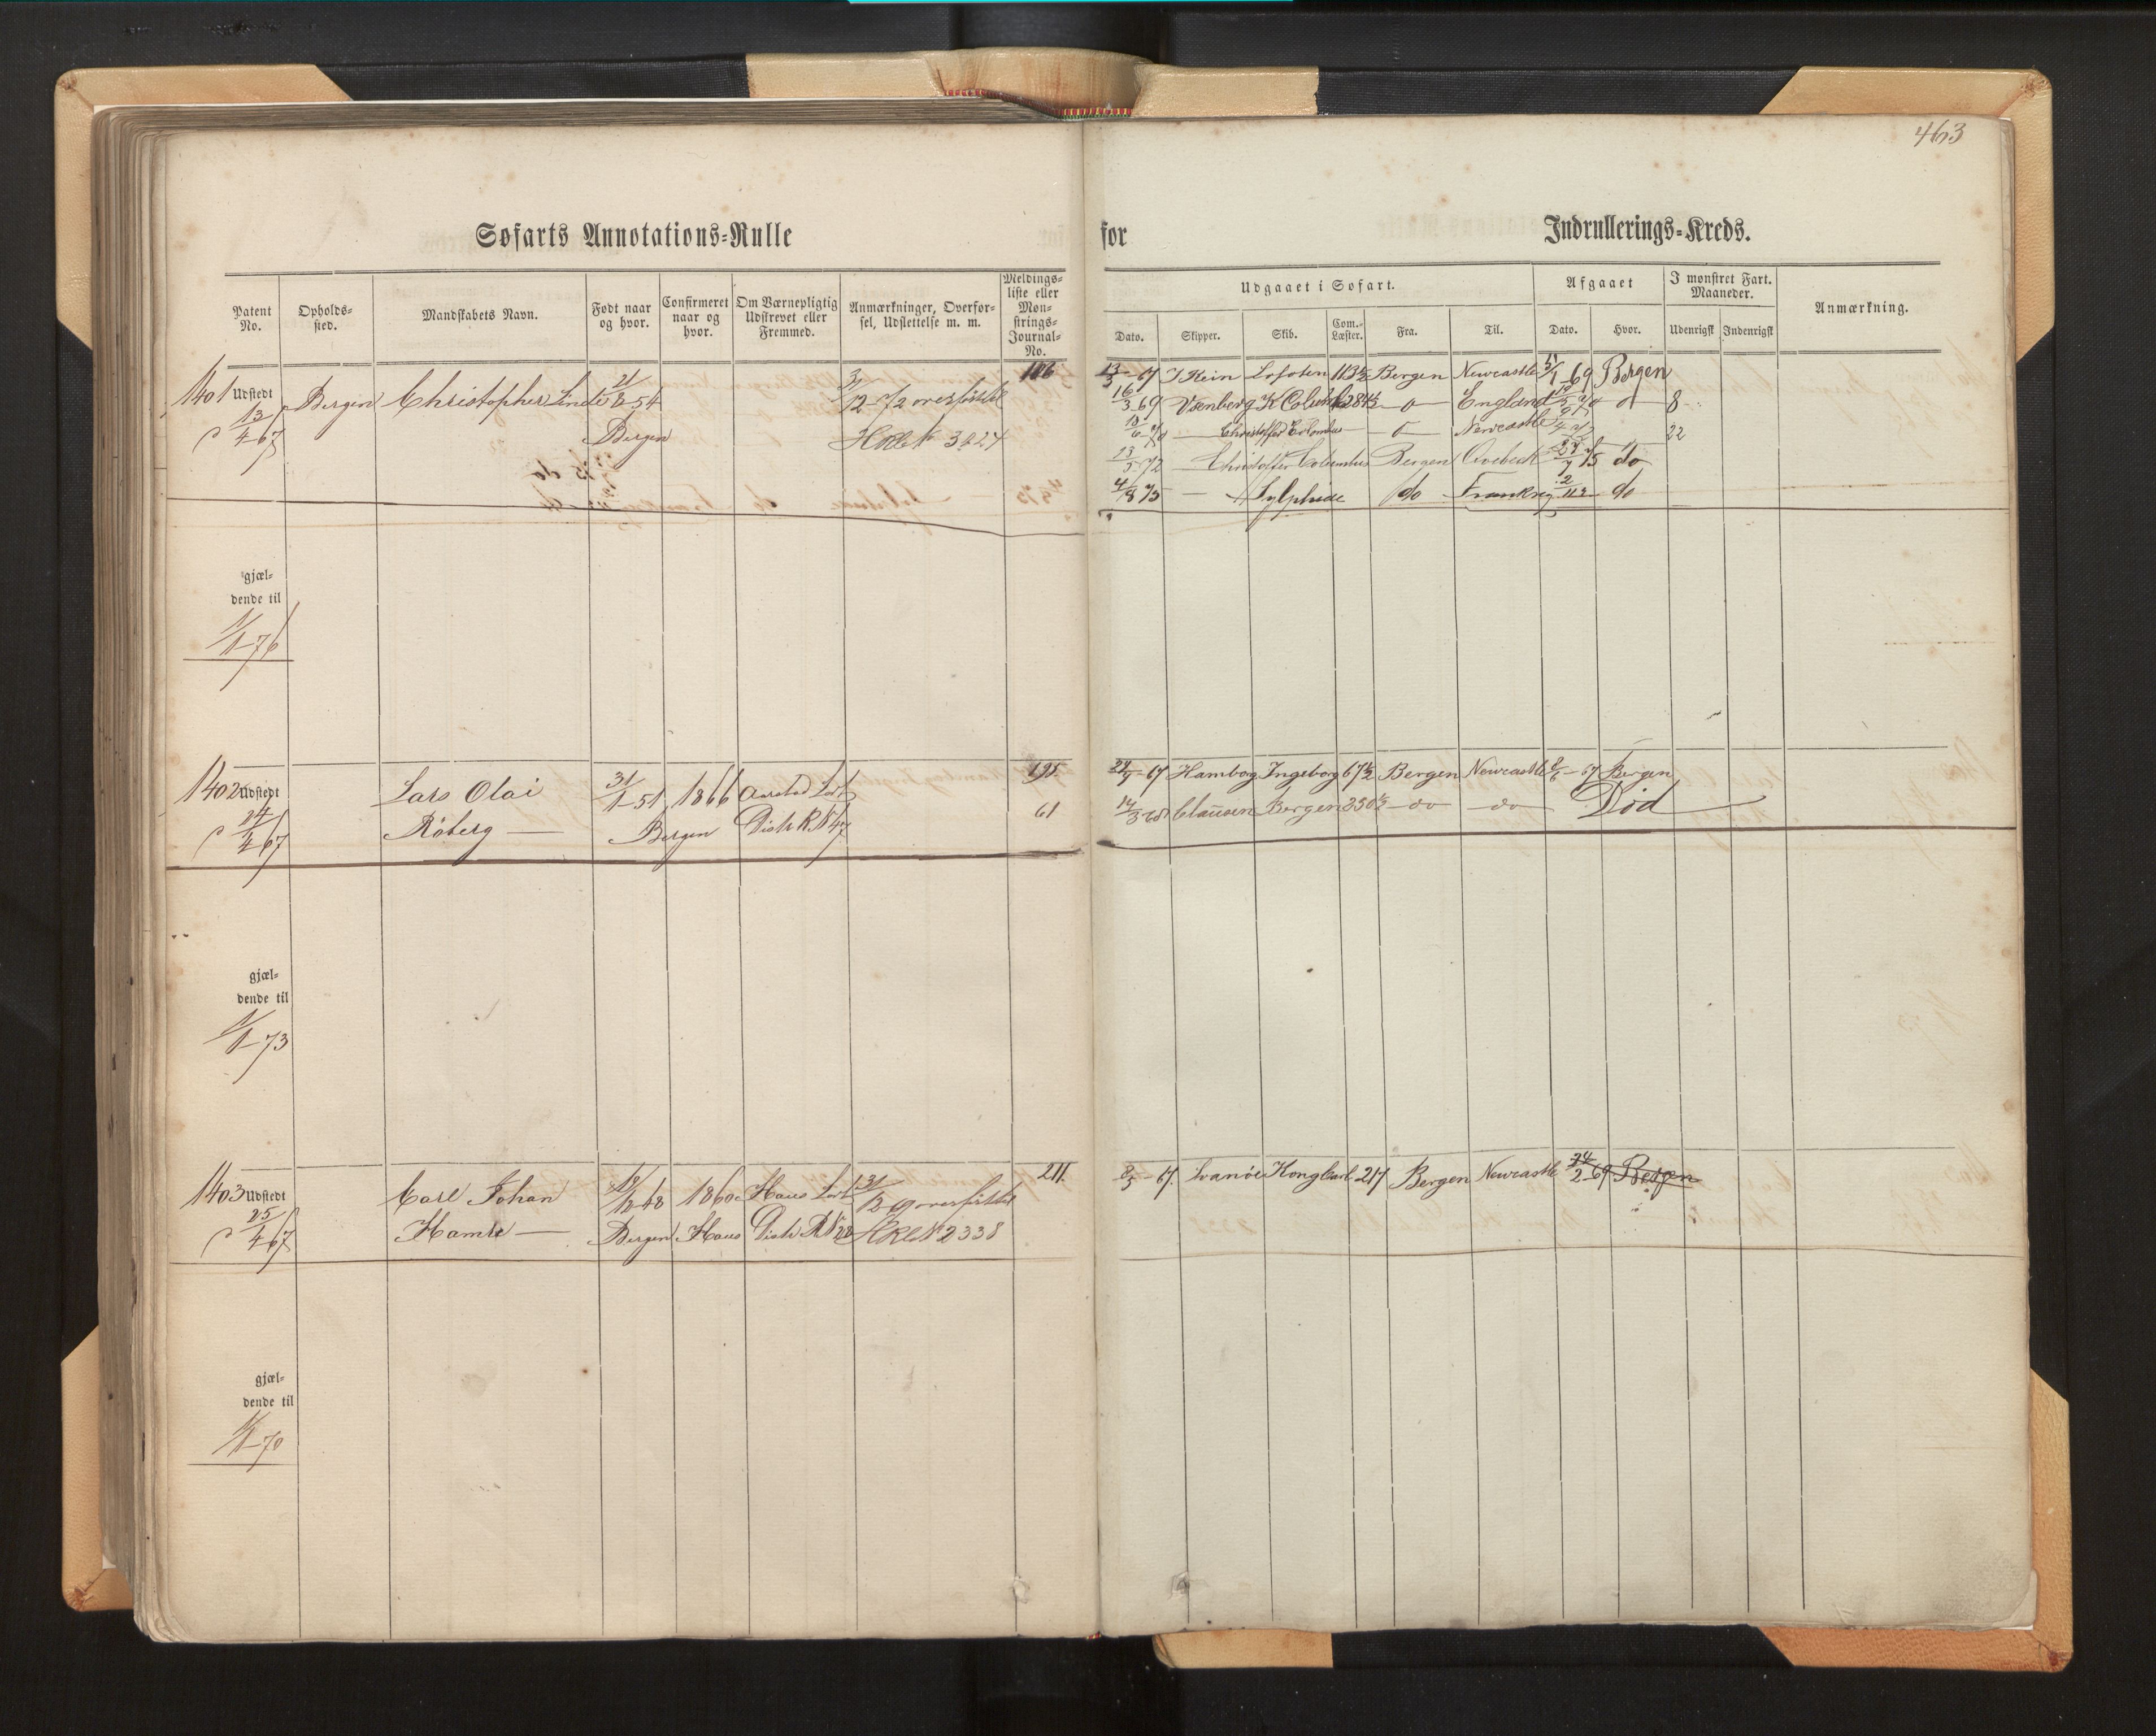 463
Søfarts Annotations-Rulle
for Indrullerings-Kreds.
Patent No. Opholds-sted. Mandskabets Navn. Født naar og hvor. Confirmeret naar og hvor. Om Værnepligtig Udskrevet eller Fremmed. Anmærkninger, Overførsel, Udslettelse m. m. Meldings-liste eller Mønstrings-Journal-No.
Udgaaet i Søfart. Afgaaet I mønstret Fart. Maaneder. Anmærkning.
Dato. Skipper. Skib. Com.-Læster. Fra. Til. Dato. Hvor. Udenrigsk Indenrigsk
1401 Udstedt Bergen Christopher Linde 21/8 54 3/12 72 overført 186
13/4 67 Bergen 3424
13/3 67 J Klein Lofoten 113½ Bergen Newcastle 5/1 69 Bergen
16/3 69 284½ England 8
Christoffer Colombus Newcastle 22
13/5 72 Christoffer Columbus Bergen 75 do
4/8 75 Sylphide do Frankrig do
gjæl-
dende til
1/1 76
1402 Udstedt Lars Olai 31/1 51 1866 Aarstad 195
24/4 67 Røberg Bergen Distr R No 47 61
24/4 67 Hamborg Ingeborg 67½ Bergen Newcastle 67 Bergen
14/3 68 Clausen Bergen 230½ do do Død
gjæl-
dende til
1/1 73
1403 Udstedt Carl Johan 48 186 Haus 31/12 69 overført 211.
25/4 67 Hamre Bergen Haus Distr R No 28 No 2338
67. Svanøe Kong Carl 217 Bergen Newcastle 24/2 69 Bergen
gjæl-
dende til
1/1 70